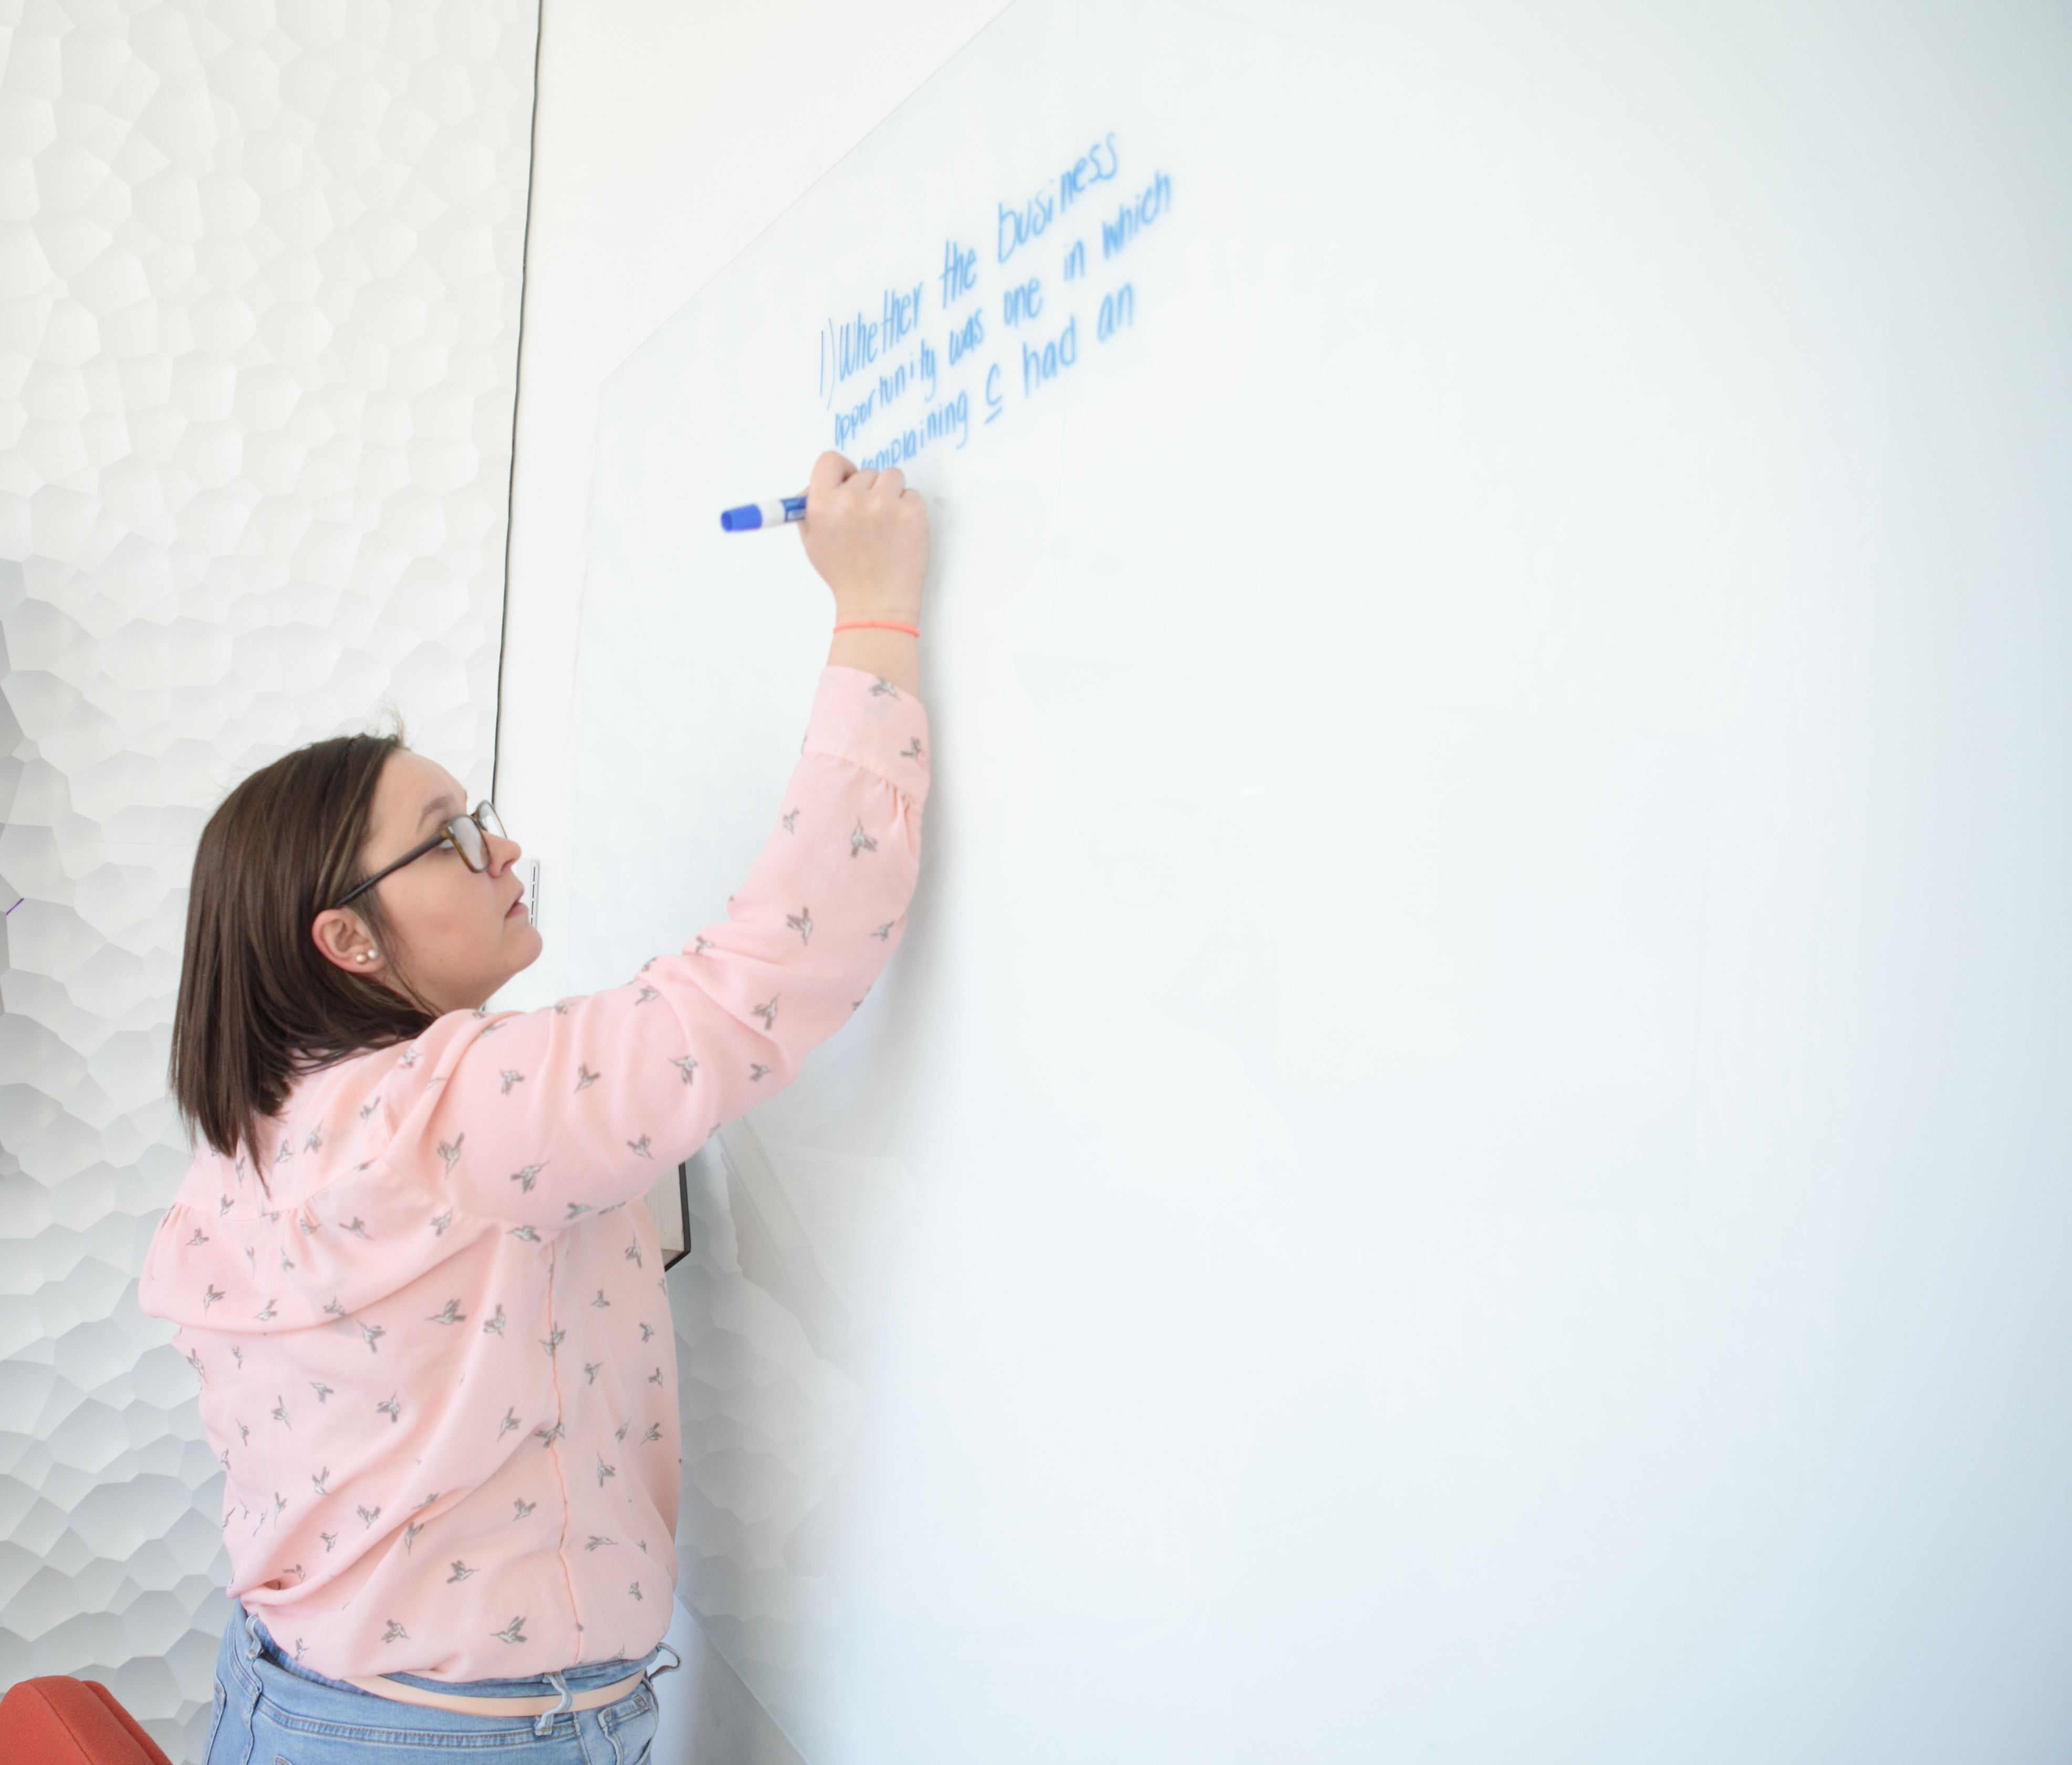 1) Whether the business
opportunity was one in which
complaining C had an